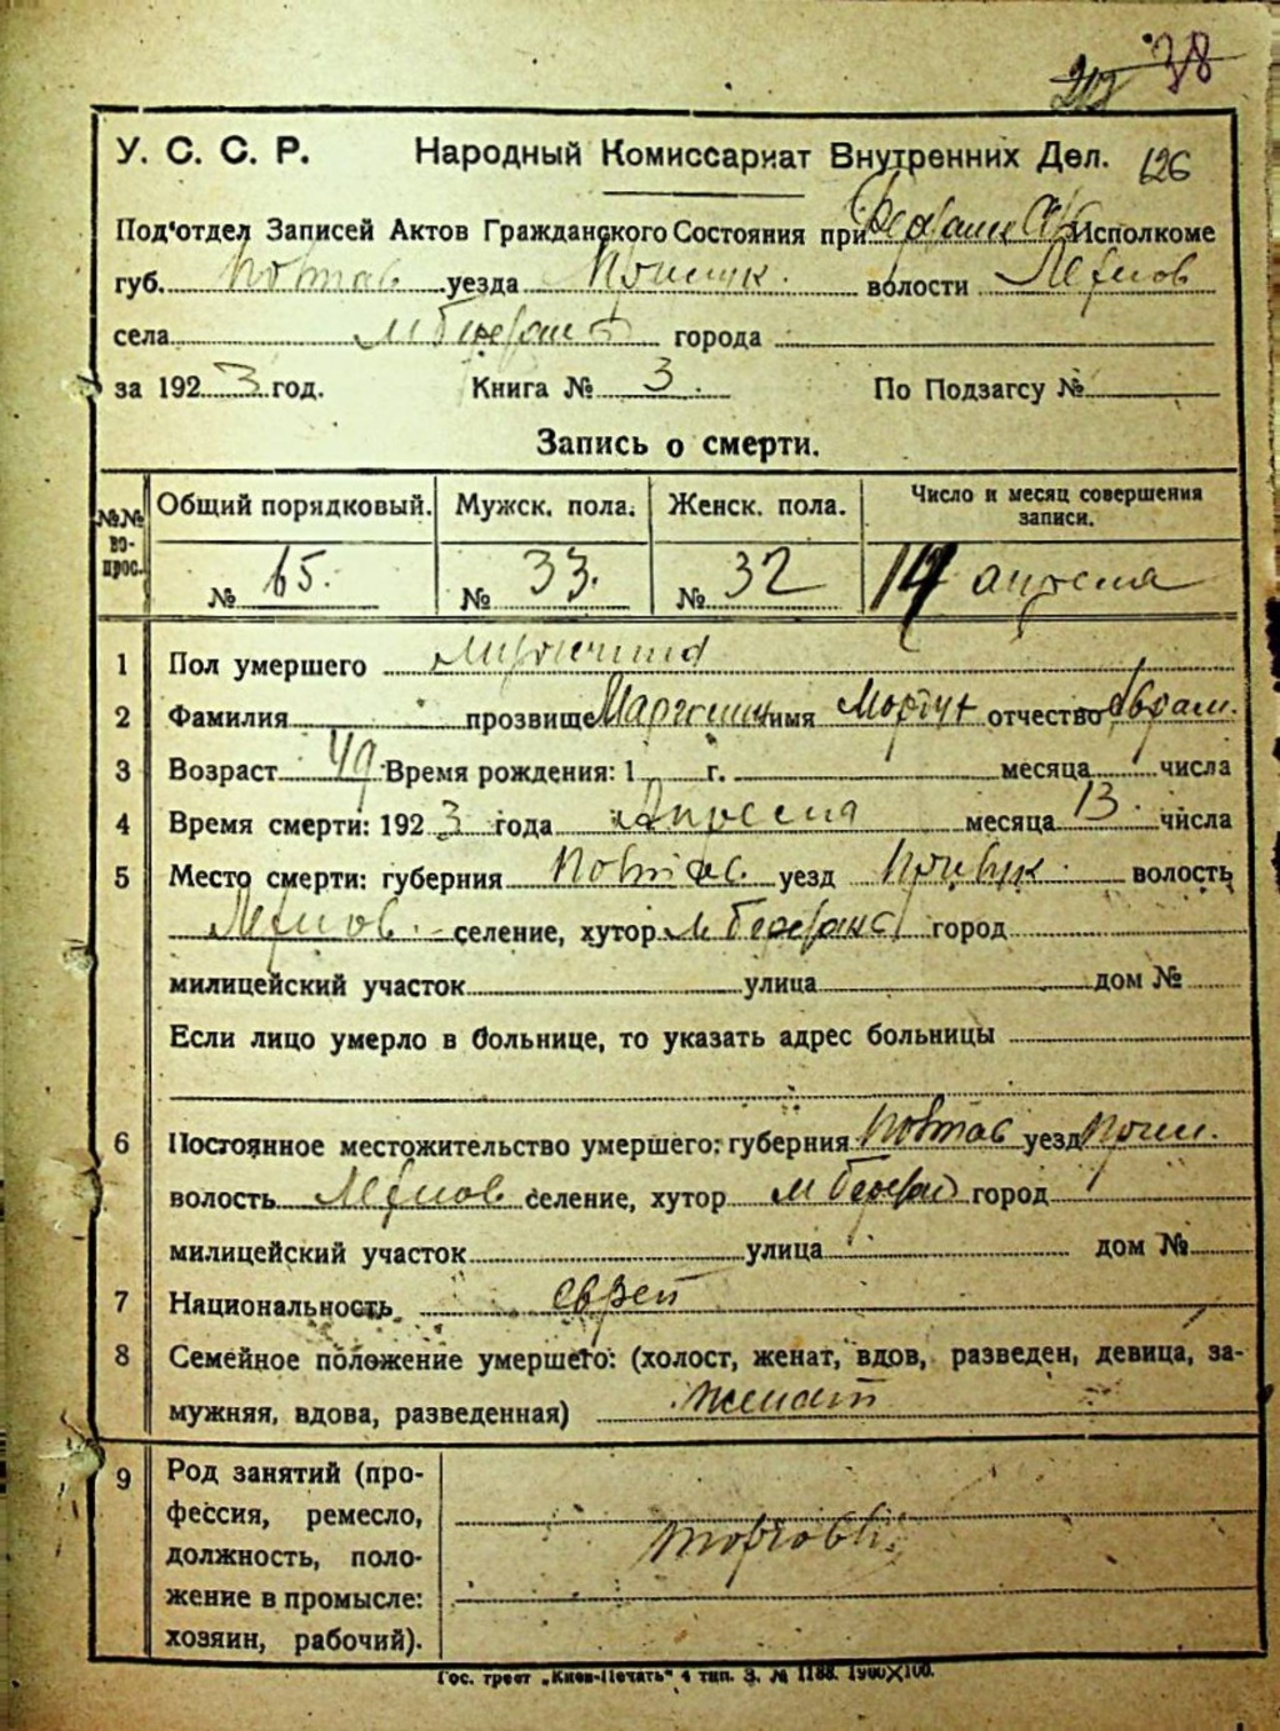 38
У. С. С. Р. Народный Комиссариат Внутренних Дел. 126
Под'отдел Записей Актов Гражданского Состояния при Исполкоме
губ. Полтав. уезда Прилук. волости
села города
за 1923 год. Книга № 3. По Подзагсу №
Запись о смерти.
№№ вопрос. Общий порядковый. Мужск. пола. Женск. пола. Число и месяц совершения записи.
№ 65. № 33. № 32 14 апреля
1 Пол умершего
2 Фамилия прозвище имя Мордух отчество Абрам.
3 Возраст 49 Время рождения: 1 г. месяца числа
4 Время смерти: 1923 года Апреля месяца 13 числа
5 Место смерти: губерния Полтав. уезд Прилук. волость
селение, хутор город
милицейский участок улица дом №
Если лицо умерло в больнице, то указать адрес больницы
6 Постоянное местожительство умершего: губерния Полтав уезд Прил.
волость селение, хутор город
милицейский участок улица дом №
7 Национальность еврей
8 Семейное положение умершего: (холост, женат, вдов, разведен, девица, за-
мужняя, вдова, разведенная) женат
9 Род занятий (про-
фессия, ремесло,
должность, поло-
жение в промысле:
хозяин, рабочий).
Гос. трест „Киев-Печать" 4 тип. З. № 1188. 1900×100.